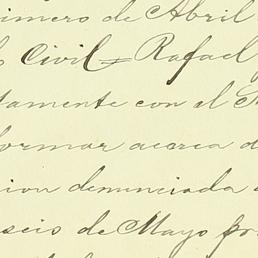 rimero de Abril
Civil = Rafael
tamente con el
formar acerca d
cion denunciada
seis de Mayo pr